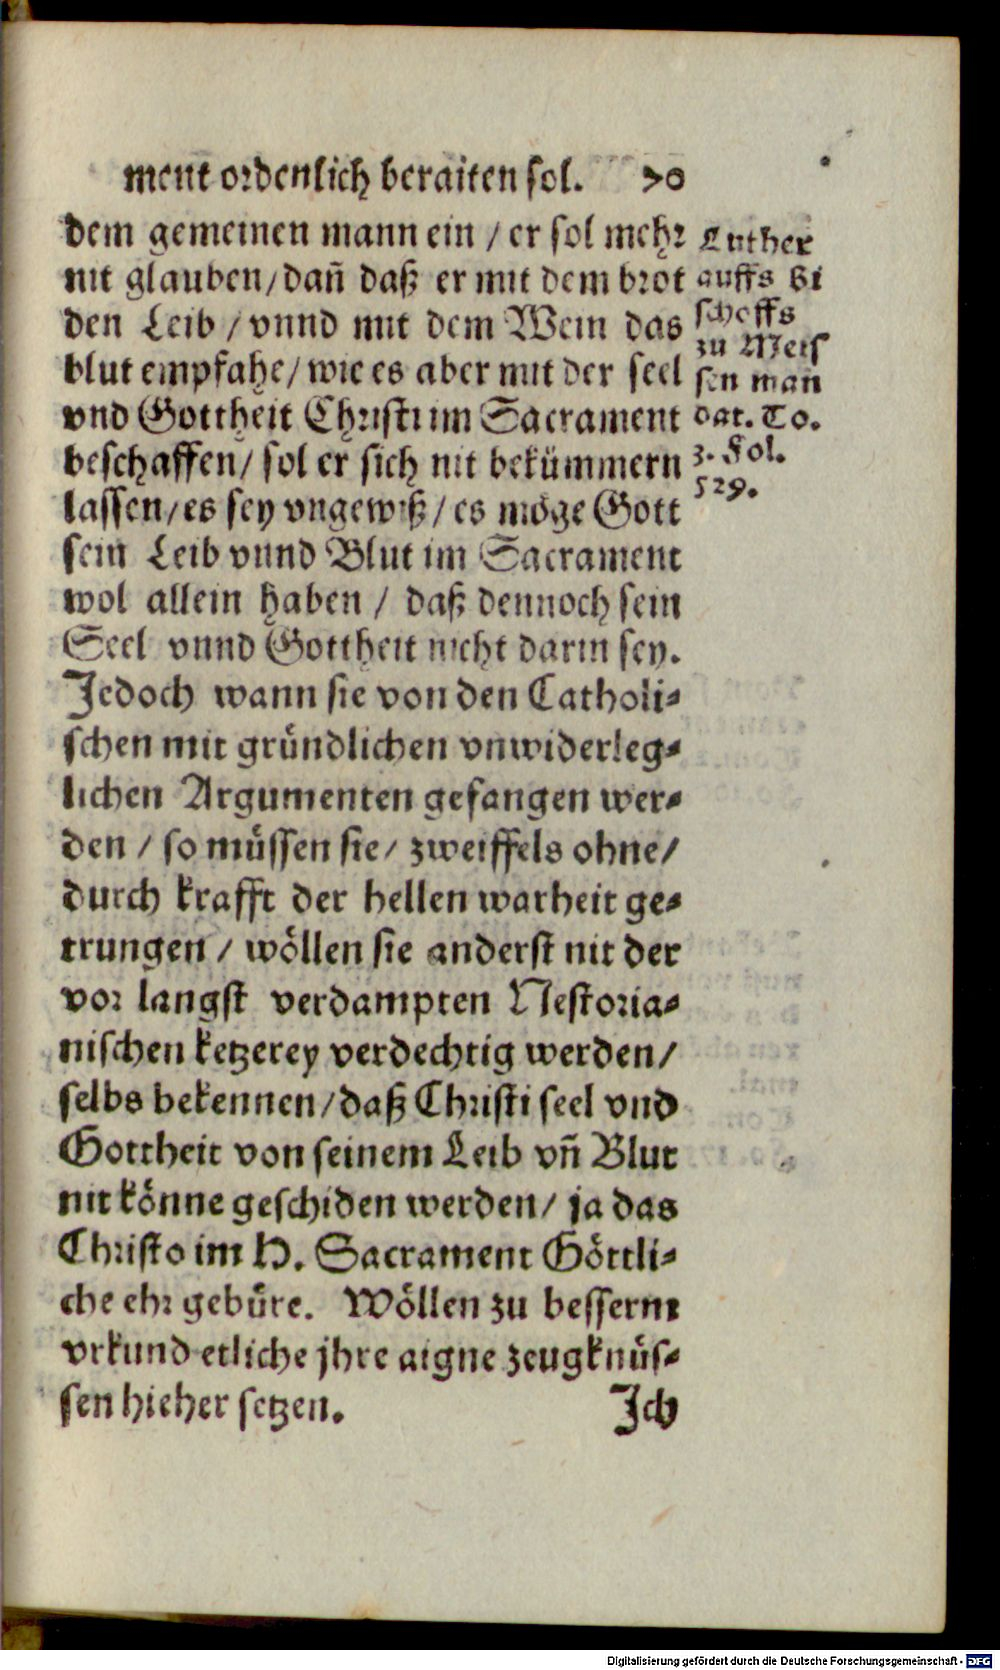 ment ordenlich beraiten sol. 70
dem gemeinen mann ein / er sol mehr
nit glauben / dañ daß er mit dem brot
den Leib / vnnd mit dem Wein das
blut empfahe / wie es aber mit der seel
vnd Gottheit Christi im Sacrament
beschaffen / sol er sich nit bekümmern
lassen / es sey vngewiß / es möge Gott
sein Leib vnnd Blut im Sacrament
wol allein haben / daß dennoch sein
Seel vnnd Gottheit nicht darin sey.
Jedoch wann sie von den Catholi-
schen mit gründlichen vnwiderleg-
lichen Argumenten gefangen wer-
den / so müssen sie / zweiffels ohne /
durch krafft der hellen warheit ge-
trungen / wöllen sie anderst nit der
vor langst verdampten Nestoria-
nischen ketzerey verdechtig werden /
selbs bekennen / daß Christi seel vnd
Gottheit von seinem Leib vñ Blut
nit könne geschiden werden / ja das
Christo im H. Sacrament Göttli-
che ehr gebüre. Wöllen zu besserm
vrkund etliche jhre aigne zeugknüs-
sen hieher setzen. Jch
Luther
auffs Bi
schoffs
zu Meis
sen man
dat. To.
3. Fol.
529.
Digitalisierung gefördert durch die Deutsche Forschungsgemeinschaft - DFG